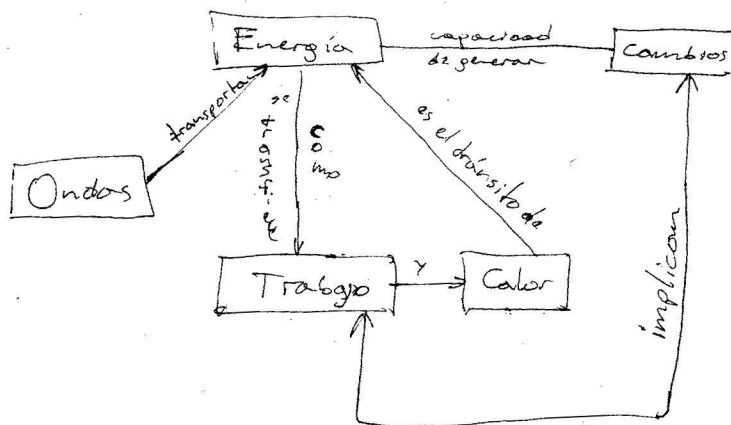 Energía
capacidad
de generar
Cambios
transportan
se transfiere
como
es el tránsito de
Ondas
Trabajo
y
Calor
implican